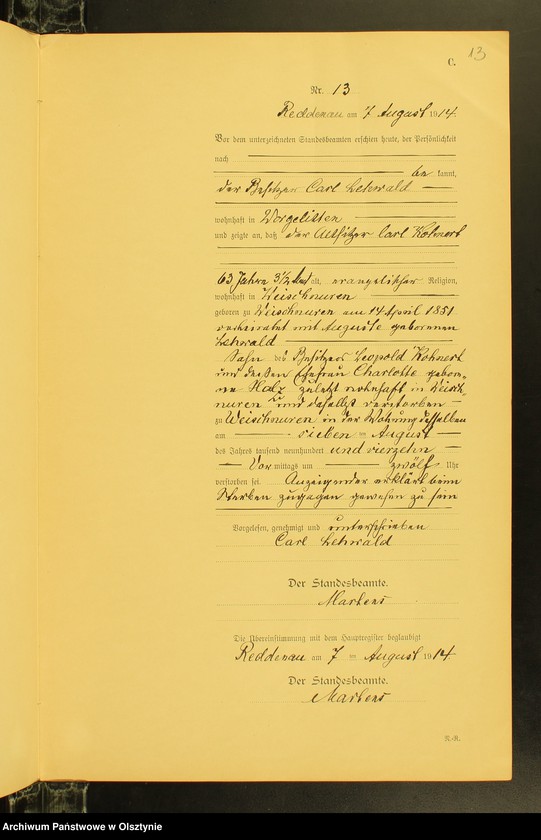 13
C.
Nr. 13
Reddenau am 7 August 1914.
Vor dem unterzeichneten Standesbeamten erschien heute, der Persönlichkeit
nach
be kannt,
der Besitzer Carl Lehwald
wohnhaft in Worglitten
und zeigte an, daß der Altsitzer Carl Kohnert
63 Jahre 3 1/2 Mnt alt, evangelischer Religion,
wohnhaft in Weischnuren
geboren zu Weischnuren am 14 April 1851
verheiratet mit Auguste geborenen
Lehwald
Sohn des Besitzers Leopold Kohnert
und dessen Ehefrau Charlotte gebore-
ne zuletzt wohnhaft in Weisch-
nuren und daselbst verstorben
zu Weischnuren in der Wohnung desselben
am sieben ten August
des Jahres tausend neunhundert und vierzehn
Vor mittags um zwölf Uhr
verstorben sei. Anzeigender erklärt beim
Sterben zugegen gewesen zu sein
Vorgelesen, genehmigt und unterschrieben
Carl Lehwald
Der Standesbeamte.
Martens
Die Übereinstimmung mit dem Hauptregister beglaubigt
Reddenau am 7 ten August 1914.
Der Standesbeamte.
Martens
R.-R.
Archiwum Państwowe w Olsztynie